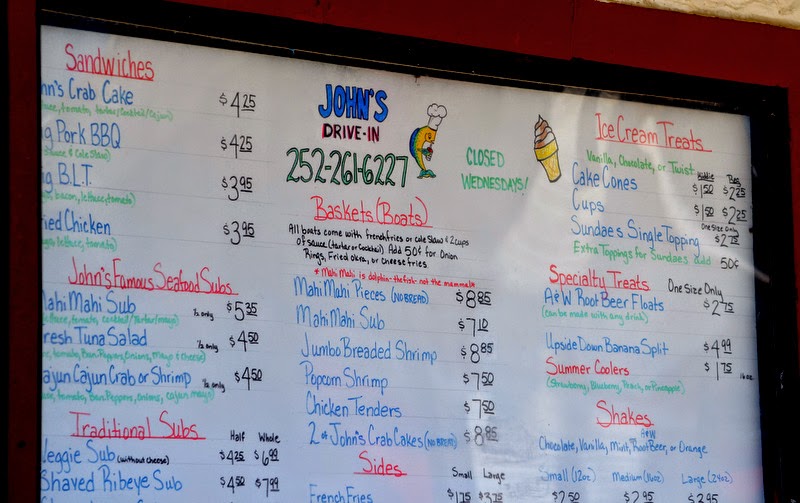 Sandwiches
hn's Crab Cake $4.25
tomato, tartar/cocktail/cajun)
Pork BBQ $4.25
sauce & cole slaw)
B.L.T. $3.95
bacon, lettuce, tomato)
ried Chicken $3.95
lettuce, tomato)
John's Famous Seafood Subs
Mahi Mahi Sub ½ only $5.35
lettuce, tomato, cocktail/tartar/mayo)
resh Tuna Salad ½ only $4.50
tomato, Ban. Peppers, Onions, Mayo & cheese)
ajun Cajun Crab or Shrimp ½ only $4.50
tomato, Ban. Peppers, onions, cajun mayo)
Traditional Subs Half Whole
Veggie Sub (without cheese) $4.25 $6.99
Shaved Ribeye Sub $4.50 $7.99
JOHN'S
DRIVE-IN
252-261-6227
CLOSED
WEDNESDAYS!
Baskets (Boats)
All boats come with french fries or cole slaw & 2 cups
of sauce (tartar or cocktail) Add 50¢ for Onion
Rings, Fried okra, or cheese fries
* Mahi Mahi is dolphin-the fish-not the mammal
Mahi Mahi Pieces (NO BREAD) $8.85
Mahi Mahi Sub $7.10
Jumbo Breaded Shrimp $8.85
Popcorn Shrimp $7.50
Chicken Tenders $7.50
2 of John's Crab Cakes (NO BREAD) $8.95
Sides Small Large
French Fries $1.75 $3.75
Ice Cream Treats
Vanilla, Chocolate, or Twist
Kiddie Reg
Cake Cones $1.50 $2.25
Cups $1.50 $2.25
One Size Only
Sundaes Single Topping $2.75
Extra Toppings for Sundaes add 50¢
Specialty Treats One Size Only
A&W Root Beer Floats $2.75
(can be made with any drink)
Upside Down Banana Split $4.99
Summer Coolers $1.75 16 oz
(Strawberry, Blueberry, Peach, or Pineapple)
Shakes
A&W
Chocolate, Vanilla, Mint, Root Beer, or Orange
Small (12oz) Medium (16oz) Large (24oz)
$2.50 $2.95 $3.95